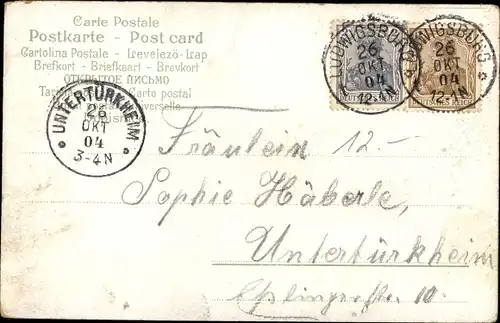 Carte Postale
Postkarte - Post card
Cartolina Postale - Levelező-Lap
Brefkort - Briefkaart - Brevkort
ОТКРЫТОЕ ПИСЬМО
Carto postal
UNTERTÜRKHEIM
26
OKT
04
3-4N
LUDWIGSBURG
26
OKT
04
12-1N
DEUTSCHES REICH
LUDWIGSBURG
26
OKT
04
12-1N
REICH
Fräulein 12.-
Sophie Häberle,
Untertürkheim
Eßlingerstr. 10.